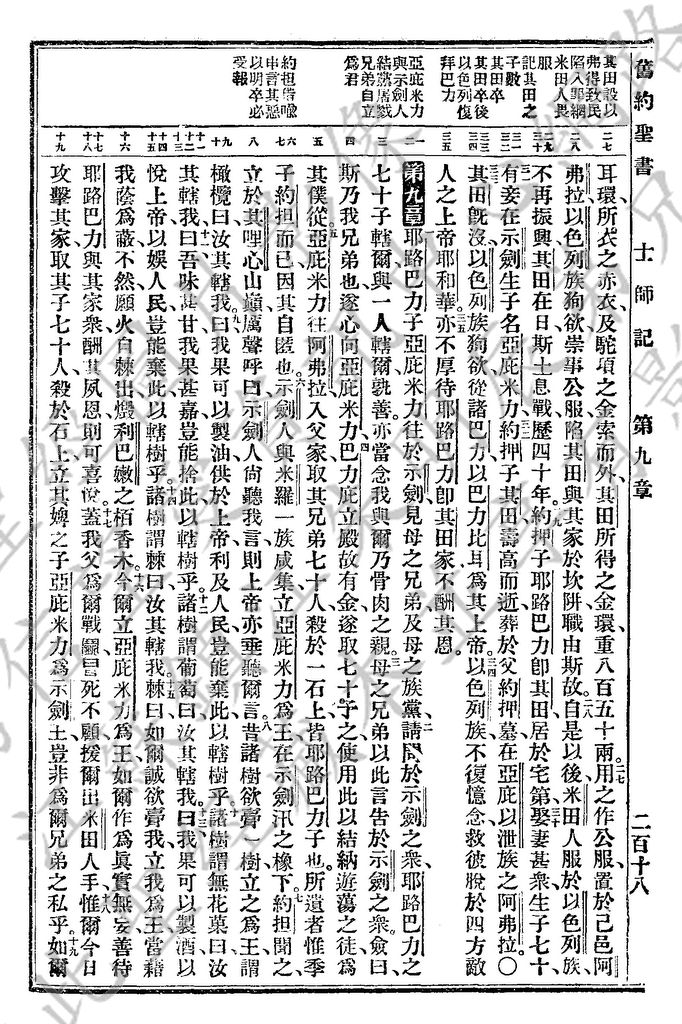 舊約聖書 士師記 第九章 二百十八
其田設以
弗得致民
陷入罪網
米田人畏
服
記其田之
子數
其田卒
其田卒後
以色列復
拜巴力
亞庇米力
與示劍人
結黨居戮
兄弟自立
為君
約担借喻
申言其惡
以明卒必
受報
二七
二八
二九
三十
三一
三二
三三
三四
三五
一
二
三
四
五
六
七
八
九
十
十一
十二
十三
十四
十五
十六
十七
十八
十九
耳環所衣之赤衣及駝項之金索而外其田所得之金環重八百五十兩用之作公服置於己邑阿
弗拉以色列族狗欲崇事公服陷其田與其家於坎阱職由斯故自是以後米田人服於以色列族
不再振興其田在日斯土息戰歷四十年約押子耶路巴力卽其田居於宅第娶妻甚衆生子七十
有妾在示劍生子名亞庇米力約押子其田壽高而逝葬於父約押墓在亞庇以泄族之阿弗拉〇
其田旣沒以色列族狗欲從諸巴力以巴力比耳爲其上帝以色列族不復憶念救彼脫於四方敵
人之上帝耶和華亦不厚待耶路巴力卽其田家不酬其恩
第九章 耶路巴力子亞庇米力往於示劍見母之兄弟及母之族黨請問於示劍之衆耶路巴力之
七十子轄爾與一人轄爾孰善亦當念我與爾乃骨肉之親母之兄弟以此言告於示劍之衆僉曰
斯乃我兄弟也遂心向亞庇米力巴力庇立殿故有金遂取七十予之使用此以結納遊蕩之徒爲
其僕從亞庇米力往阿弗拉入父家取其兄弟七十人殺於一石上皆耶路巴力子也所遺者惟季
子約担而已因其自匿也示劍人與米羅一族咸集立亞庇米力爲王在示劍汛之橡下約担聞之
立於其哩心山巔厲聲呼曰示劍人尙聽我言則上帝亦垂聽爾言昔諸樹欲膏一樹立之爲王謂
橄欖曰汝其轄我曰我果可以製油供於上帝利及人民豈能棄此以轄樹乎諸樹謂無花菓曰汝
其轄我曰吾味甚甘我果甚嘉豈能捨此以轄樹乎諸樹謂葡萄曰汝其轄我曰我果可以製酒以
悅上帝以娛人民豈能棄此以轄樹乎諸樹謂棘曰汝其轄我棘曰如爾誠欲膏我立我爲王當藉
我蔭爲蔽不然願火自棘出燬利巴嫩之栢香木今爾立亞庇米力爲王如爾作爲眞實無妄善待
耶路巴力與其家衆酬其夙恩則可喜悅蓋我父爲爾戰鬭冒死不顧援爾出米田人手惟爾今日
攻擊其家取其子七十人殺於石上立其婢之子亞庇米力爲示劍王豈非爲爾兄弟之私乎如爾